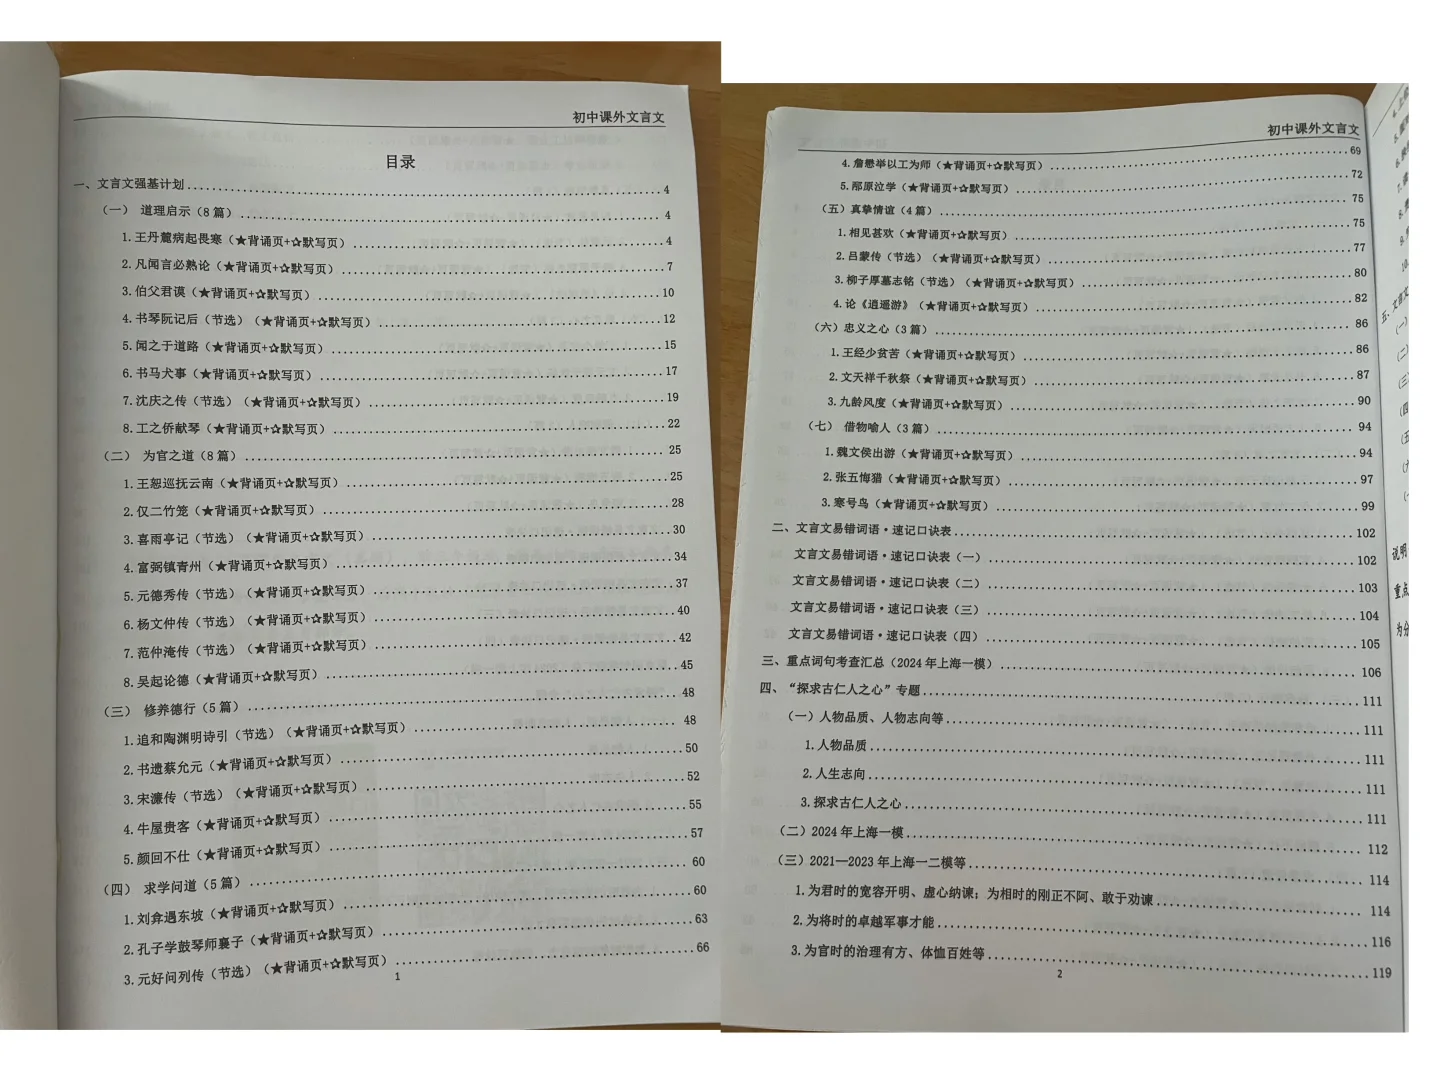 初中课外文言文
目录
一、文言文强基计划 4
（一） 道理启示（8 篇） 4
1.王丹麓病起畏寒（★背诵页+✰默写页） 4
2.凡闻言必熟论（★背诵页+✰默写页） 7
3.伯父君谟（★背诵页+✰默写页） 10
4.书琴阮记后（节选）（★背诵页+✰默写页） 12
5.闻之于道路（★背诵页+✰默写页） 15
6.书马犬事（★背诵页+✰默写页） 17
7.沈庆之传（节选）（★背诵页+✰默写页） 19
8.工之侨献琴（★背诵页+✰默写页） 22
（二） 为官之道（8 篇） 25
1.王恕巡抚云南（★背诵页+✰默写页） 25
2.仅二竹笼（★背诵页+✰默写页） 28
3.喜雨亭记（节选）（★背诵页+✰默写页） 30
4.富弼镇青州（★背诵页+✰默写页） 34
5.元德秀传（节选）（★背诵页+✰默写页） 37
6.杨文仲传（节选）（★背诵页+✰默写页） 40
7.范仲淹传（节选）（★背诵页+✰默写页） 42
8.吴起论德（★背诵页+✰默写页） 45
（三） 修养德行（5 篇） 48
1.追和陶渊明诗引（节选）（★背诵页+✰默写页） 48
2.书遗蔡允元（★背诵页+✰默写页） 50
3.宋濂传（节选）（★背诵页+✰默写页） 52
4.牛屋贵客（★背诵页+✰默写页） 55
5.颜回不仕（★背诵页+✰默写页） 57
（四） 求学问道（5 篇） 60
1.刘弇遇东坡（★背诵页+✰默写页） 60
2.孔子学鼓琴师襄子（★背诵页+✰默写页） 63
3.元好问列传（节选）（★背诵页+✰默写页） 66
1
初中课外文言文
4.詹懋举以工为师（★背诵页+✰默写页） 69
5.邴原泣学（★背诵页+✰默写页） 72
（五）真挚情谊（4 篇） 75
1.相见甚欢（★背诵页+✰默写页） 75
2.吕蒙传（节选）（★背诵页+✰默写页） 77
3.柳子厚墓志铭（节选）（★背诵页+✰默写页） 80
4.论《逍遥游》（★背诵页+✰默写页） 82
（六）忠义之心（3 篇） 86
1.王经少贫苦（★背诵页+✰默写页） 86
2.文天祥千秋祭（★背诵页+✰默写页） 87
3.九龄风度（★背诵页+✰默写页） 90
（七） 借物喻人（3 篇） 94
1.魏文侯出游（★背诵页+✰默写页） 94
2.张五悔猎（★背诵页+✰默写页） 97
3.寒号鸟（★背诵页+✰默写页） 99
二、文言文易错词语·速记口诀表 102
文言文易错词语·速记口诀表（一） 102
文言文易错词语·速记口诀表（二） 103
文言文易错词语·速记口诀表（三） 104
文言文易错词语·速记口诀表（四） 105
三、重点词句考查汇总（2024 年上海一模） 106
四、“探求古仁人之心”专题 111
（一）人物品质、人物志向等 111
1.人物品质 111
2.人生志向 111
3.探求古仁人之心 111
（二）2024 年上海一模 112
（三）2021—2023 年上海一二模等 114
1.为君时的宽容开明、虚心纳谏；为相时的刚正不阿、敢于劝谏 114
2.为将时的卓越军事才能 116
3.为官时的治理有方、体恤百姓等 119
2
五、文言文
（一）
（二）
（三）
（四
（五
说明
重点
为分